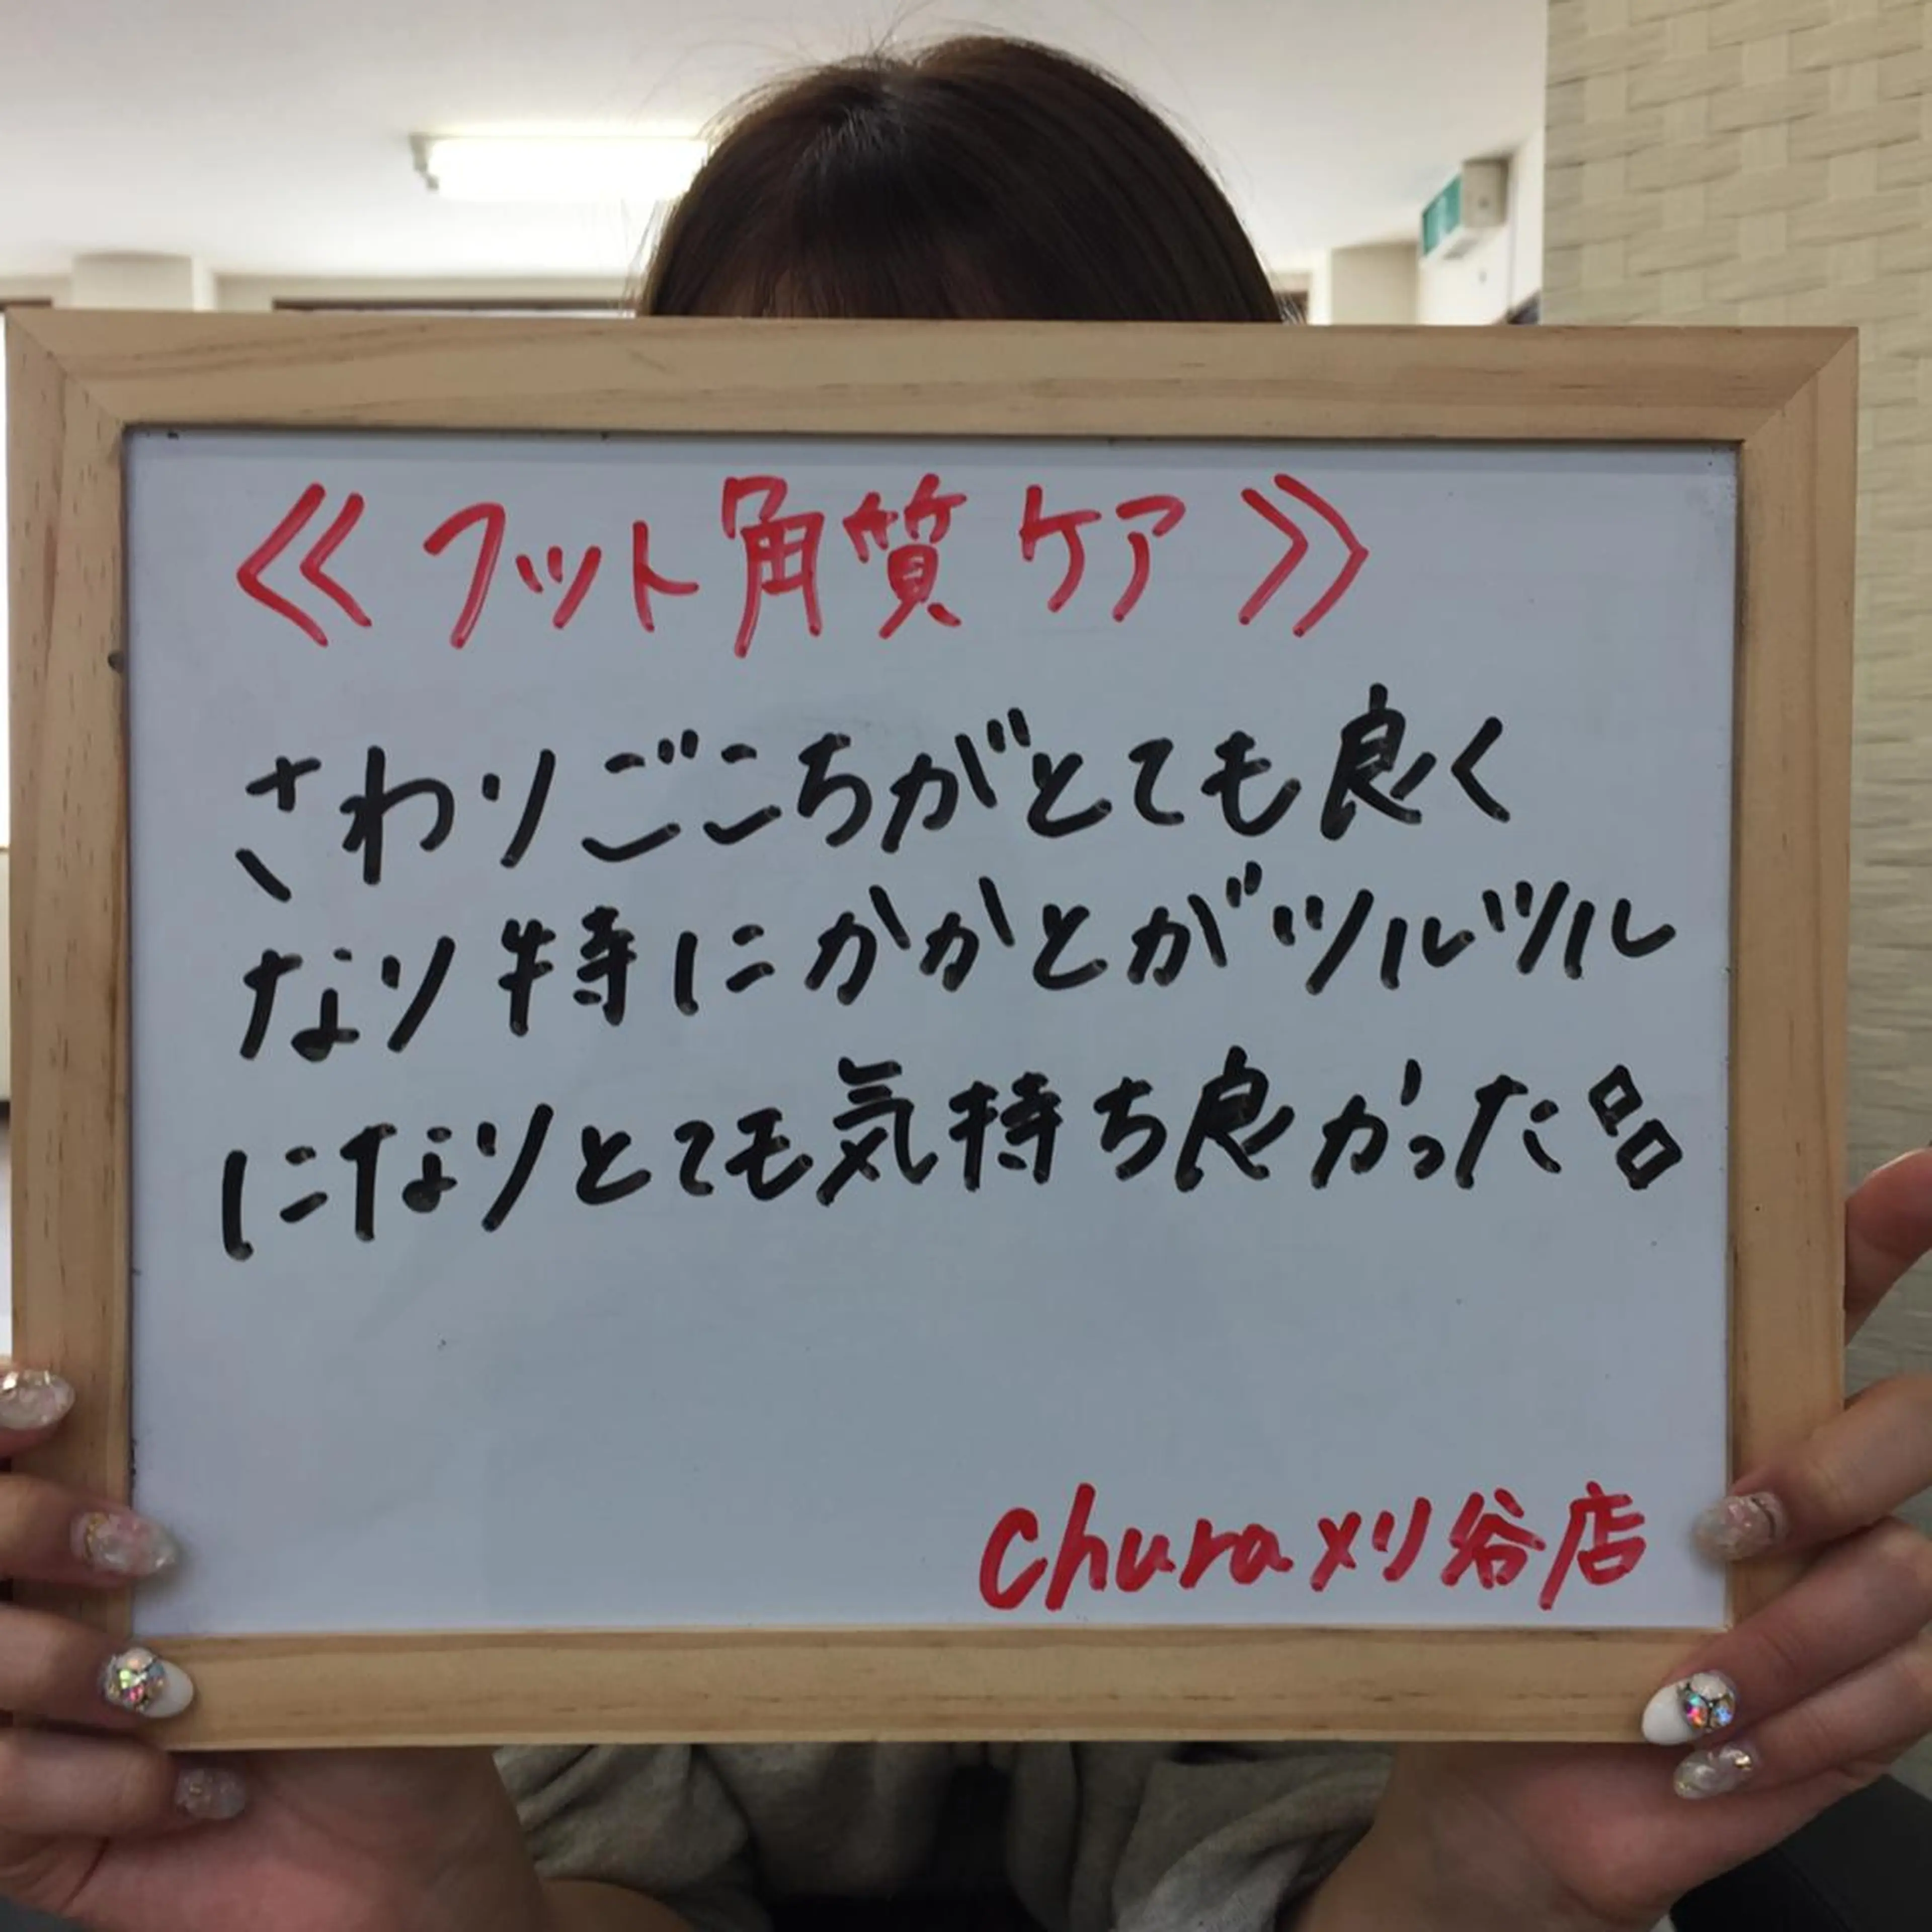 ≪フット角質ケア≫
さわりごこちがとても良く
なり特にかかとがツルツル
になりとても気持ち良かった!!
chura刈谷店